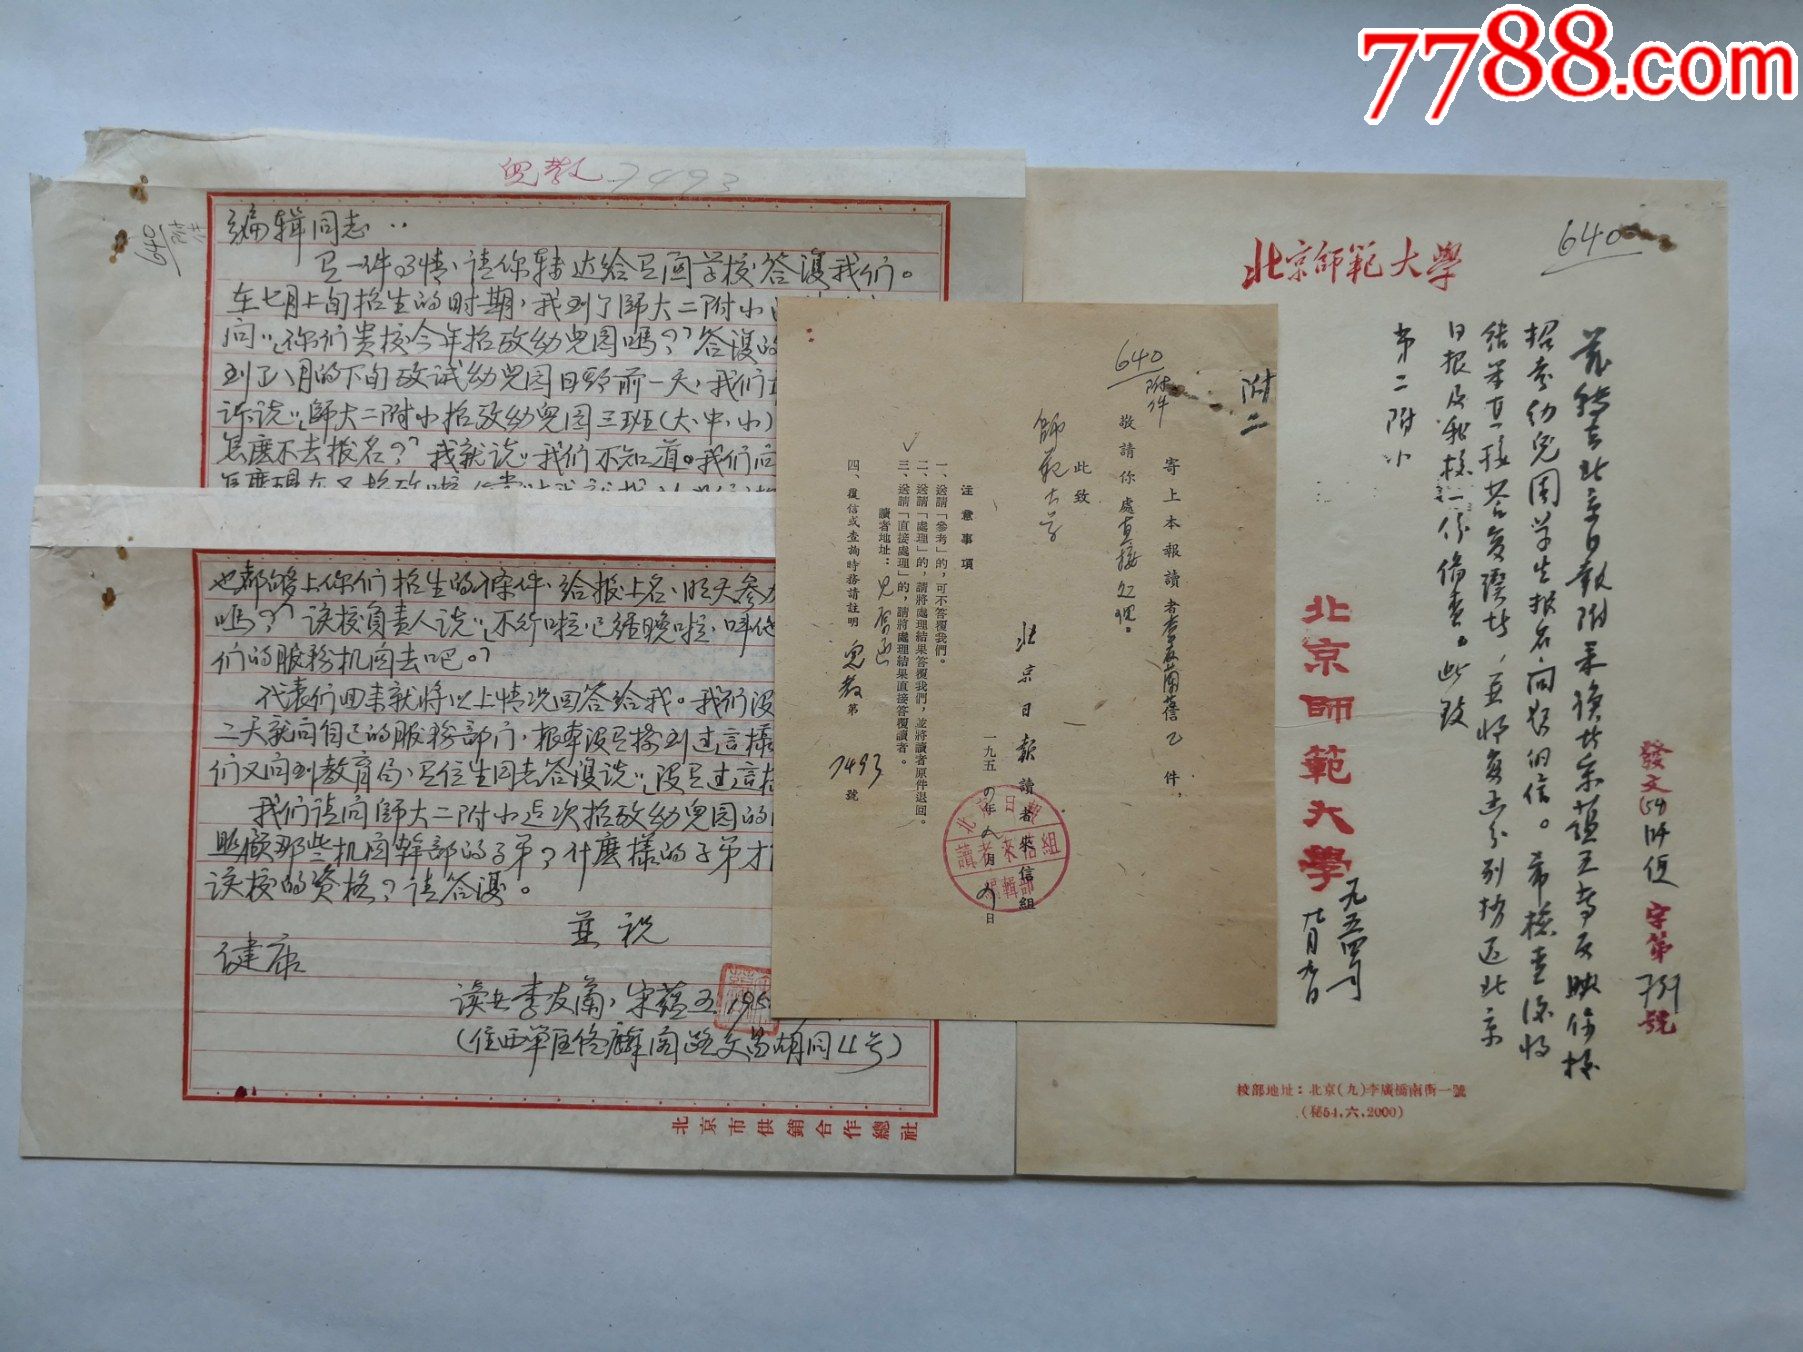 7788.com
兒教 7493
640
附件
编辑同志:
有一件事情,请你转达给有关学校答复我们。
在七月上旬招生的时期,我到了師大二附小
问:"你们贵校今年招攷幼兒园嗎?"答复
到了八月的下旬攷试幼兒园日期前一天,我们
诉说:"師大二附小招攷幼兒园三班(大、中、小)
怎麼不去报名?"我就说:"我们不知道。我们问
也都够上你们招生的條件,给报上名,明天参
嗎?"该校負责人说:"不行啦,已經晚啦,叫他
们的服务机関去吧。"
代表们回来就将以上情况回答给我。我们没
二天就问自己的服务部门,根本没有接到过這樣
们又问到教育局,有位生同志答复说:"没有过這
我们请问師大二附小这次招攷幼兒园的
照顾那些机関幹部的子弟?什麽樣的子弟才
该校的资格?请答复。
並祝
健康
读者李友蘭、宋蕴五 195
(住西單區佟麟阁路文昌胡同4号)
北京市供銷合作總社
附二
640
附件
寄上本報讀者李友蘭等信乙件,
敬請你處直接处理。
此致
師範大学
北京日報讀者來信組
一九五四年九月 日
北京日報
讀者來信組
編輯部
注意事項
一、送請「參考」的,可不答覆我們。
二、送請「處理」的,請將處理結果答覆我們,並將讀者原件退回。
三、送請「直接處理」的,請將處理結果直接答覆讀者。
讀者地址:见原函
四、復信或查詢時務請註明 兒教第 7493 號
640
北京師範大學
發文(54)師便字第 739 號
兹轉去北京日報附來讀者宋蕴五等反映你校
招考幼兒园学生报名问题的信。希檢查後将
结果直接答复讀者,並将复函分别抄送北京
日报及我校一份備查。此致
第二附小
北京師範大學
一九五四年 月九日
校部地址:北京(九)李廣橋南街一號
(秘54.六.2000)